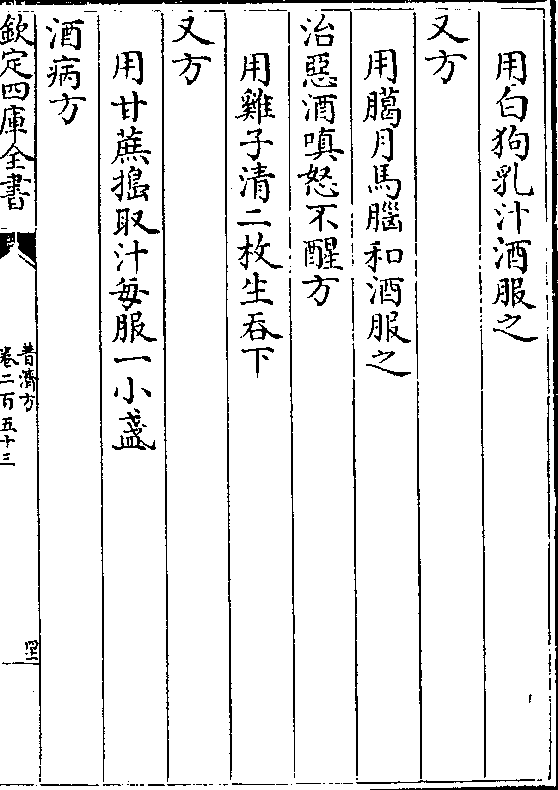 用白狗乳汁酒服之
又方
用臈月馬腦和酒服之
治惡酒嗔怒不醒方
用雞子清二枚生吞下
又方
用甘蔗搗取汁每服一小盞
酒病方
欽定四庫全書
普濟方
卷二百五十三